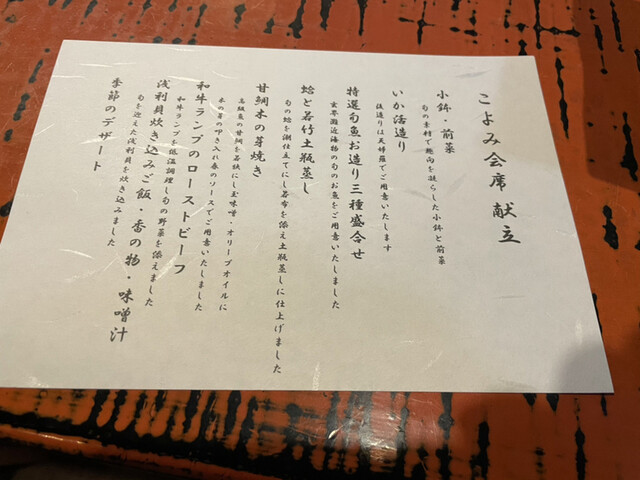 こよみ会席 献立
小鉢・前菜
旬の素材で趣向を凝らした小鉢と前菜
いか活造り
後造りは天婦羅でご用意いたします
特選旬魚お造り三種盛合せ
玄界灘近海物の旬のお魚をご用意いたしました
蛤と若竹土瓶蒸し
旬の蛤を潮仕立てにし若布を添え土瓶蒸しに仕上げました
甘鯛木の芽焼き
高級魚の甘鯛を若狭にし玉味噌・オリーブオイルに
木の芽の叩き入れ春のソースでご用意いたしました
和牛ランプのローストビーフ
和牛ランプを低温調理し旬の野菜を添えました
浅利貝炊き込みご飯・香の物・味噌汁
旬を迎えた浅利貝を炊き込みました
季節のデザート